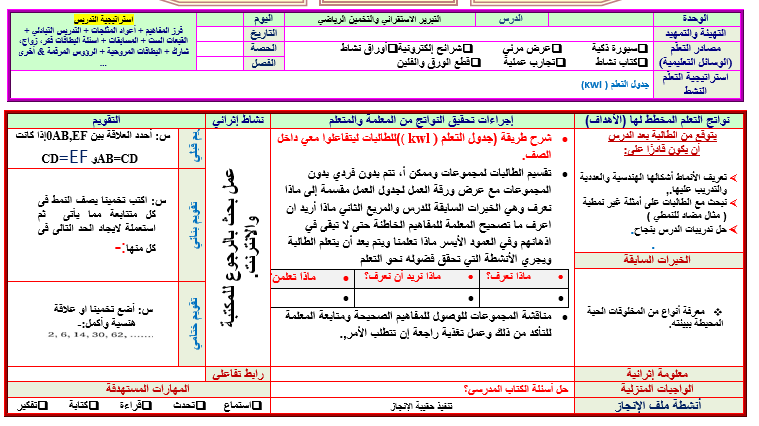 الوحدة
الدرس
التبرير الاستقرائي والتخمين الرياضي
اليوم
استراتيجية التدريس
التهيئة والتمهيد
التاريخ
فرز المفاهيم + أعواد المثلجات + التدريس التبادلي + القبعات الست + المسابقات + اسئلة البطاقات فكر، زواج، شارك + البطاقات المروحية + الرووس المرقمة & أخرى ...
مصادر التعلم (الوسائل التعليمية)
❑سبورة ذكية ❑عرض مرئي ❑شرائح إلكترونية❑أوراق نشاط
❑كتاب نشاط ❑تجارب عملية ❑قطع الورق والفلين
الحصة
الفصل
استراتيجية التعلم النشط
جدول التعلم (KWl)
نواتج التعلم المخطط لها (الأهداف)
إجراءات تحقيق النواتج من المعلمة والمتعلم
نشاط إثرائي
التقويم
يتوقع من الطالبة بعد الدرس
أن يكون قادرًا على:
تعريف الأنماط أشكالها الهندسية والعددية
والتدريب عليها.
نبحث مع الطالبات على أمثلة غير نمطية
( مثال مضاد للنمطي )
حل تدريبات الدرس بنجاح.
الخبرات السابقة
معرفة أنواع من المخلوقات الحية
المحيطة ببيئته.
شرح طريقة (جدول التعلم ( kwl ))للطالبات ليتفاعلوا معي داخل
الصف.
تقسيم الطالبات لمجموعات وممكن أ، تتم بدون فردي بدون
المجموعات مع عرض ورقة العمل لجدول العمل مقسمة إلى ماذا
نعرف وهي الخبرات السابقة للدرس والمربع الثاني ماذا أريد ان
اعرف ما تصحيح المعلمة للمفاهيم الخاطئة حتى لا تبقى في
اذهانهم وفي العمود الأيسر ماذا تعلمنا ويتم بعد أن يتعلم الطالبة
ويجري الأنشطة التي تحقق فضوله نحو التعلم
ماذا نعرف؟
ماذا نريد أن نعرف؟
ماذا تعلمن
مناقشة المجموعات للوصول للمفاهيم الصحيحة ومتابعة المعلمة
للتأكد من ذلك وعمل تغذية راجعة إن تتطلب الأمر.,
عمل بحث بالرجوع للمكتبة
والانترنت.
يم قبلي
س: أحدد العلاقة بين 0AB,EFإذا كانت
AB=CD و CD=EF
تقويم بنائي
س: اكتب تخمينا يصف النمط في
كل متتابعة مما يأتي ثم
استعملة لايجاد الحد التالي في
كل منها:-
تقويم ختامي
س: أضع تخمينا او علاقة
هنسية وأكمل:-
2, 6, 14, 30, 62, .......
معلومة إثرانية
رابط تفاعلي
الواجبات المنزلية
حل أسئلة الكتاب المدرسي؟
المهارات المستهدفة
أنشطة ملف الإنجاز
تنفيذ حقيبة الإنجاز
❑استماع ❑تحدث ❑قراءة ❑كتابة ❑تفكير